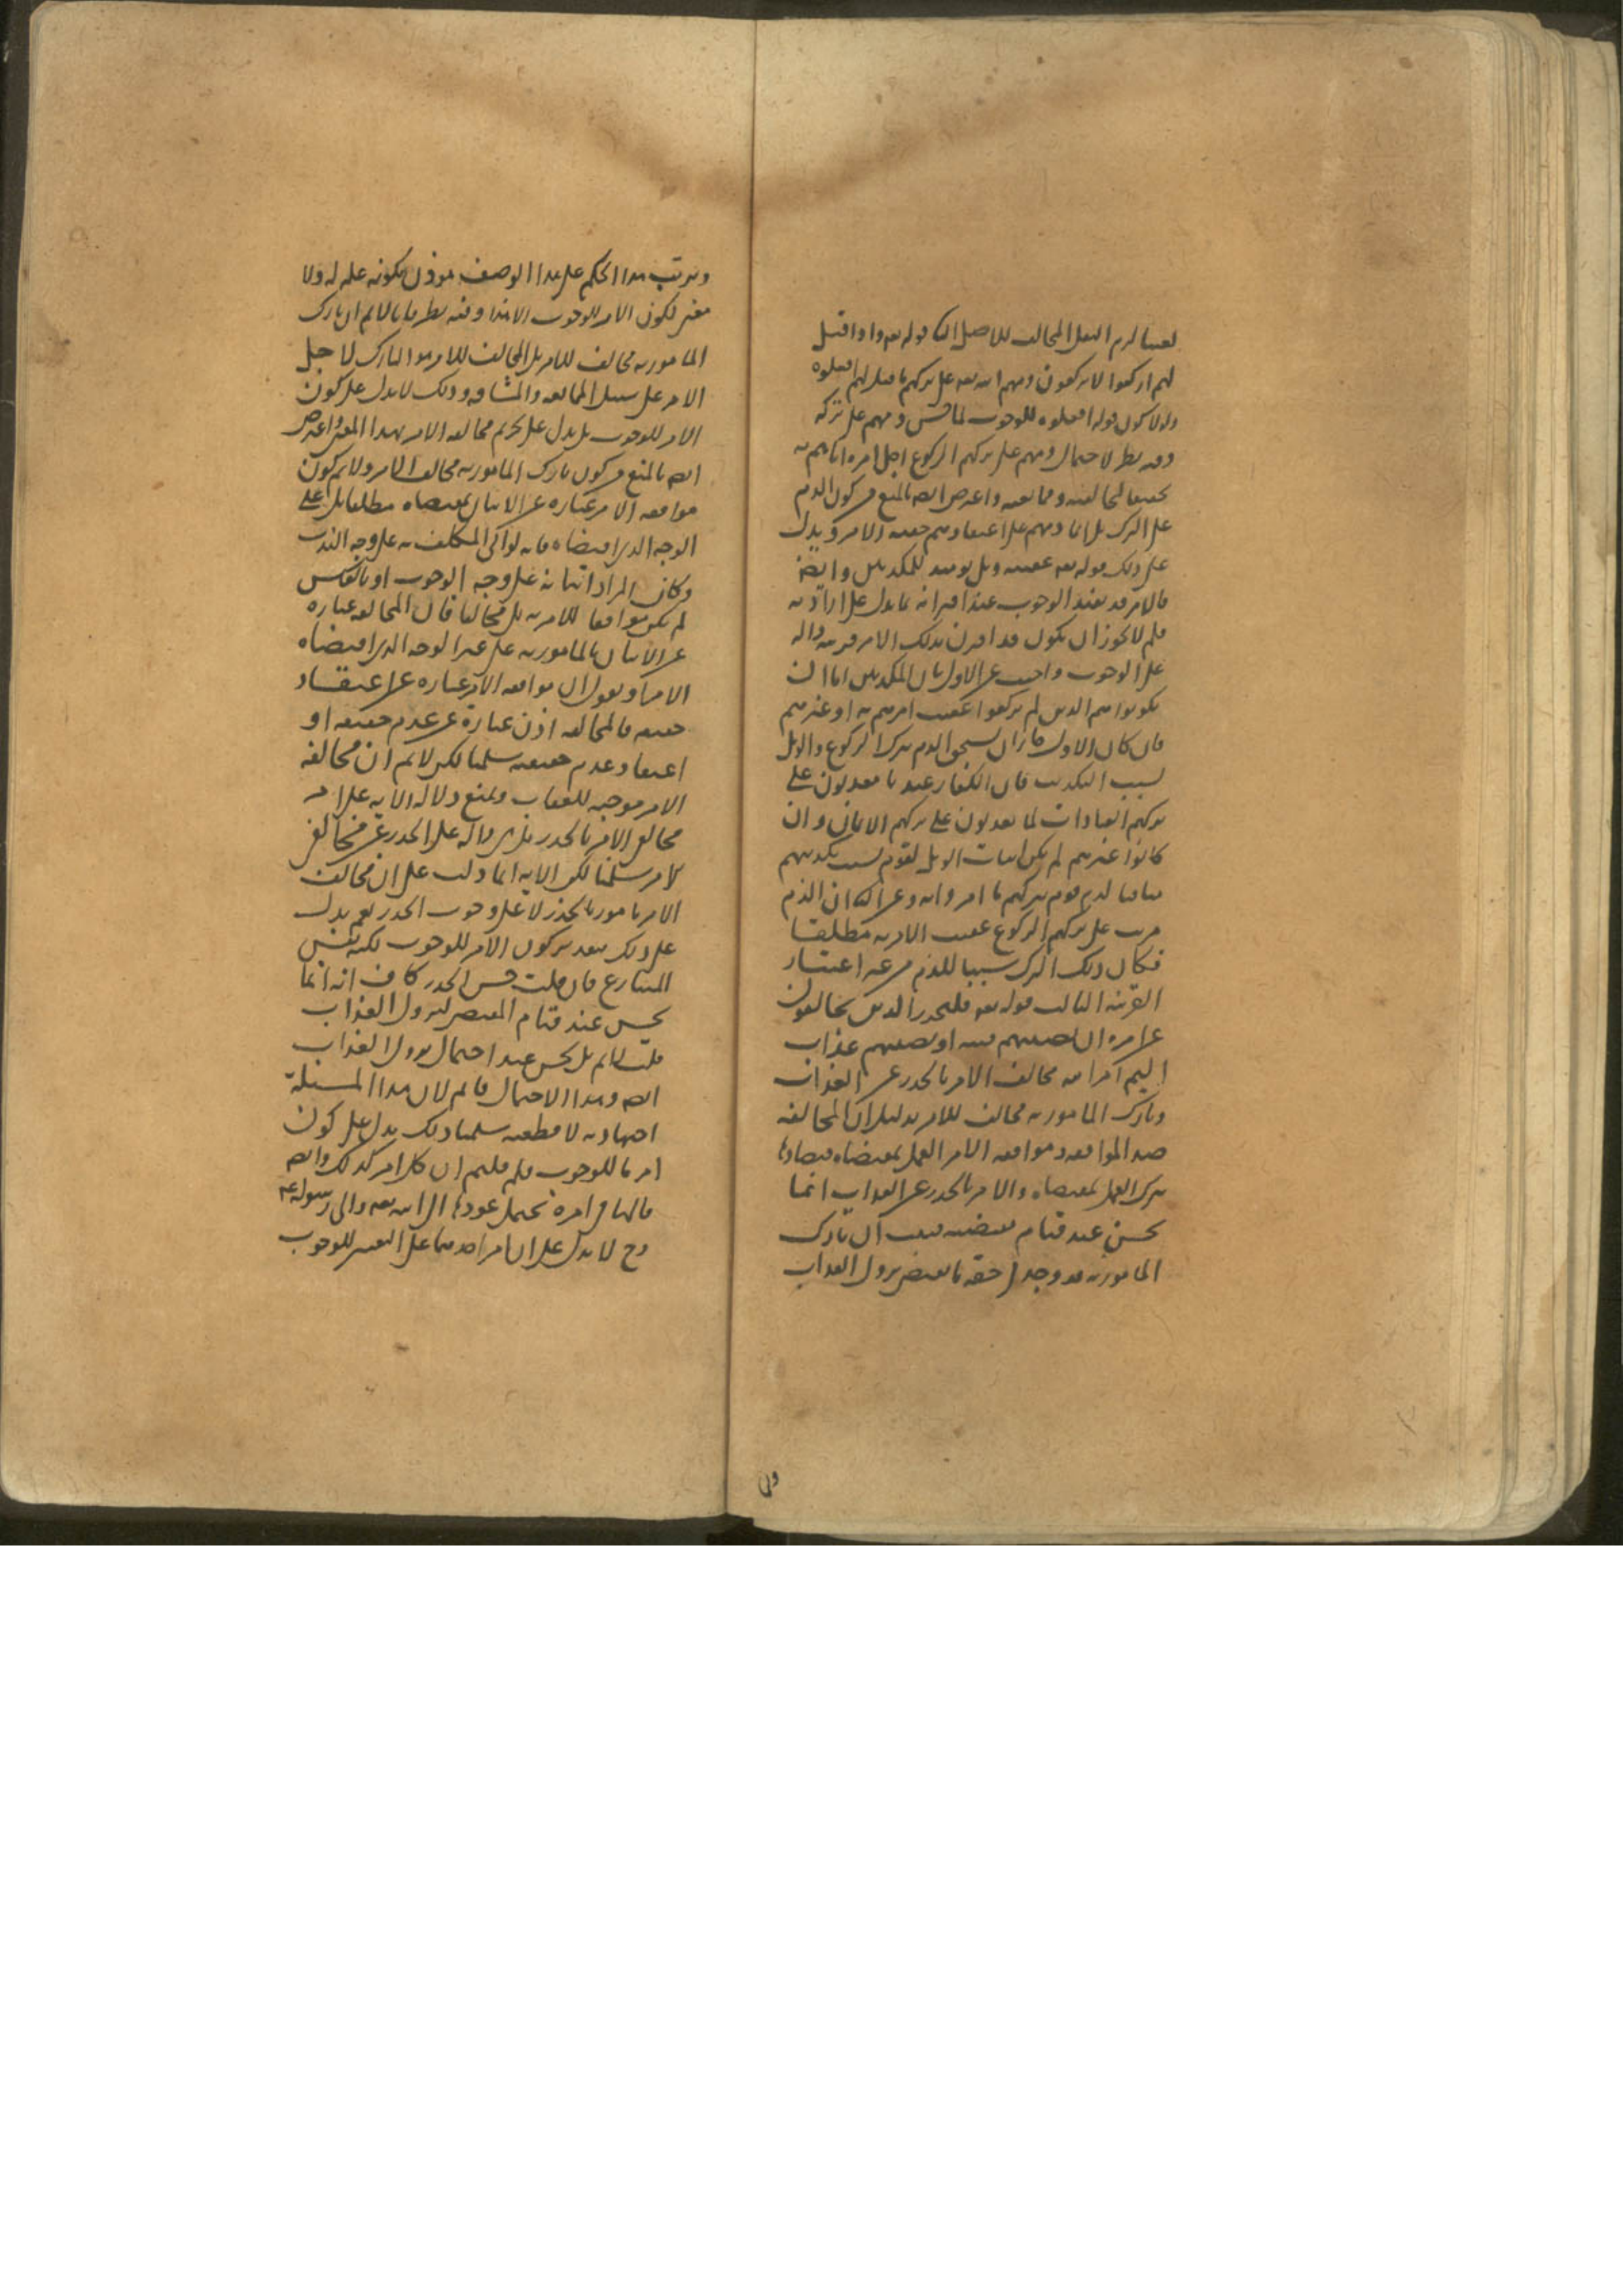 لغيبا لزم النقل المخالف للاصل الثانى قوله تعه واذا قيل
لهم اركعوا لا يركعون ذمهم الله تعه على تركهم ما قيل لهم افعلوه
ولولا كون قوله افعلوه للوجوب لما حسن ذمهم على تركه
وفيه نظر لاحتمال ذمهم على تركهم الركوع لاجل امره اياهم به
تحقيقا لمخالفته وممانعته واعترض ايضا بالمنع من كون الذم
على الترك بل انما ذمهم على اعتقادهم عدم حقيقة الامر ويدل
على ذلك قوله تعه عقيبه ويل يومئذ للمكذبين وايضا
فالامر قد يفيد الوجوب عند اقترانه بما يدل على ارادته
فلم لا يجوز ان يكون قد اقترن بذلك الامر قرينة دالة
على الوجوب واجيب عن الاول بان المكذبين اما ان
يكونوا هم الذين لم يركعوا عقيب امرهم به او غيرهم
فان كان الاول جاز ان يستحقوا الذم بترك الركوع والويل
بسبب التكذيب فان الكفار عندنا معذبون على
تركهم العبادات كما يعذبون على تركهم الايمان وان
كانوا غيرهم لم يكن اثبات الويل لقوم بسبب تكذيبهم
منافيا لذم قوم بتركهم ما امروا به وعن الثانى ان الذم
مرتب على تركهم الركوع عقيب الامر به مطلقا
فكان ذلك الترك سببا للذم من غير اعتبار
القرينة الثالث قوله تعه فليحذر الذين يخالفون
عن امره ان تصيبهم فتنة او يصيبهم عذاب
اليم امر الله مخالف الامر بالحذر عن العذاب
وتارك المامور به مخالف للامر بدليل ان المخالفة
ضد الموافقة وموافقة الامر العمل بمقتضاه فيضادها
ترك العمل بمقتضاه والامر بالحذر عن العذاب انما
يحسن عند قيام مقتضيه فيجب ان تارك
المامور به قد وجد فى حقه ما يقتضى نزول العذاب
وترتب هذا الحكم على هذا الوصف موذن بكونه علة له ولا
معنى لكون الامر للوجوب الا هذا وفيه نظر فانا لا نم ان تارك
المامور به مخالف للامر بل المخالف للامر هو التارك لاجل
الامر على سبيل الممانعة والمشاقة وذلك لا يدل على كون
الامر للوجوب بل يدل على تحريم مخالفة الامر بهذا المعنى واعترض
ايضا بالمنع من كون تارك المامور به مخالف الامر ولا نم كون
موافقة الامر عبارة عن الاتيان بمقتضاه مطلقا بل على
الوجه الذى اقتضاه فانه لو اتى المكلف به على وجه الندب
وكان المراد اتيانه على وجه الوجوب او بالعكس
لم يكن موافقا للامر به بل مخالفا فان المخالفة عبارة
عن الاتيان بالمامور به على غير الوجه الذى اقتضاه
الامر او نقول ان موافقة الامر عبارة عن اعتقاد
حقيته فالمخالفة اذن عبارة عن عدم حقيته او
اعتقاد عدم حقيته سلمنا لكن لا نم ان مخالفة
الامر موجبة للعقاب ونمنع دلالة الاية على امر
مخالف الامر بالحذر بل هى دالة على الحذر عن مخالف
الامر سلمنا لكن الاية انما دلت على ان مخالف
الامر مامور بالحذر لا على وجوب الحذر نعم يدل
على ذلك بتقدير كون الامر للوجوب لكنه نفس
المتنازع فان قلت حسن الحذر كاف اذ انما
يحسن عند قيام المقتضى لنزول العذاب
قلت لا نم بل يحسن عند احتمال نزول العذاب
ايضا وهذا الاحتمال قائم لان هذا المسئلة
اجتهادية لا قطعية سلمنا ذلك يدل على كون
امرنا للوجوب فلم قلتم ان كل امر كذلك وايضا
فالهاء فى امره تحتمل عودها الى الله تعه والى رسوله عم
وح لا يدل على ان امر احدهما على التعيين للوجوب